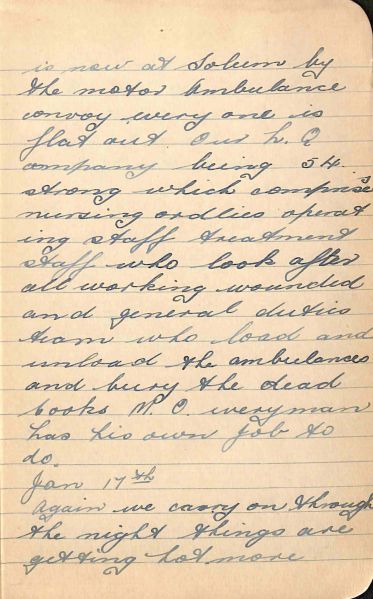 is now at Solum by
the motor ambulance
convoy every one is
flat out. Our h. Q
company being 54.
strong which comprise
nursing ordlies operat
ing staff treatment
staff who look after
all working wounded
and general duties
team who load and
unload the ambulances
and bury the dead
cooks M. O. every man
has his own job to
do.
Jan 17th
Again we carry on through
the night things are
getting hot more